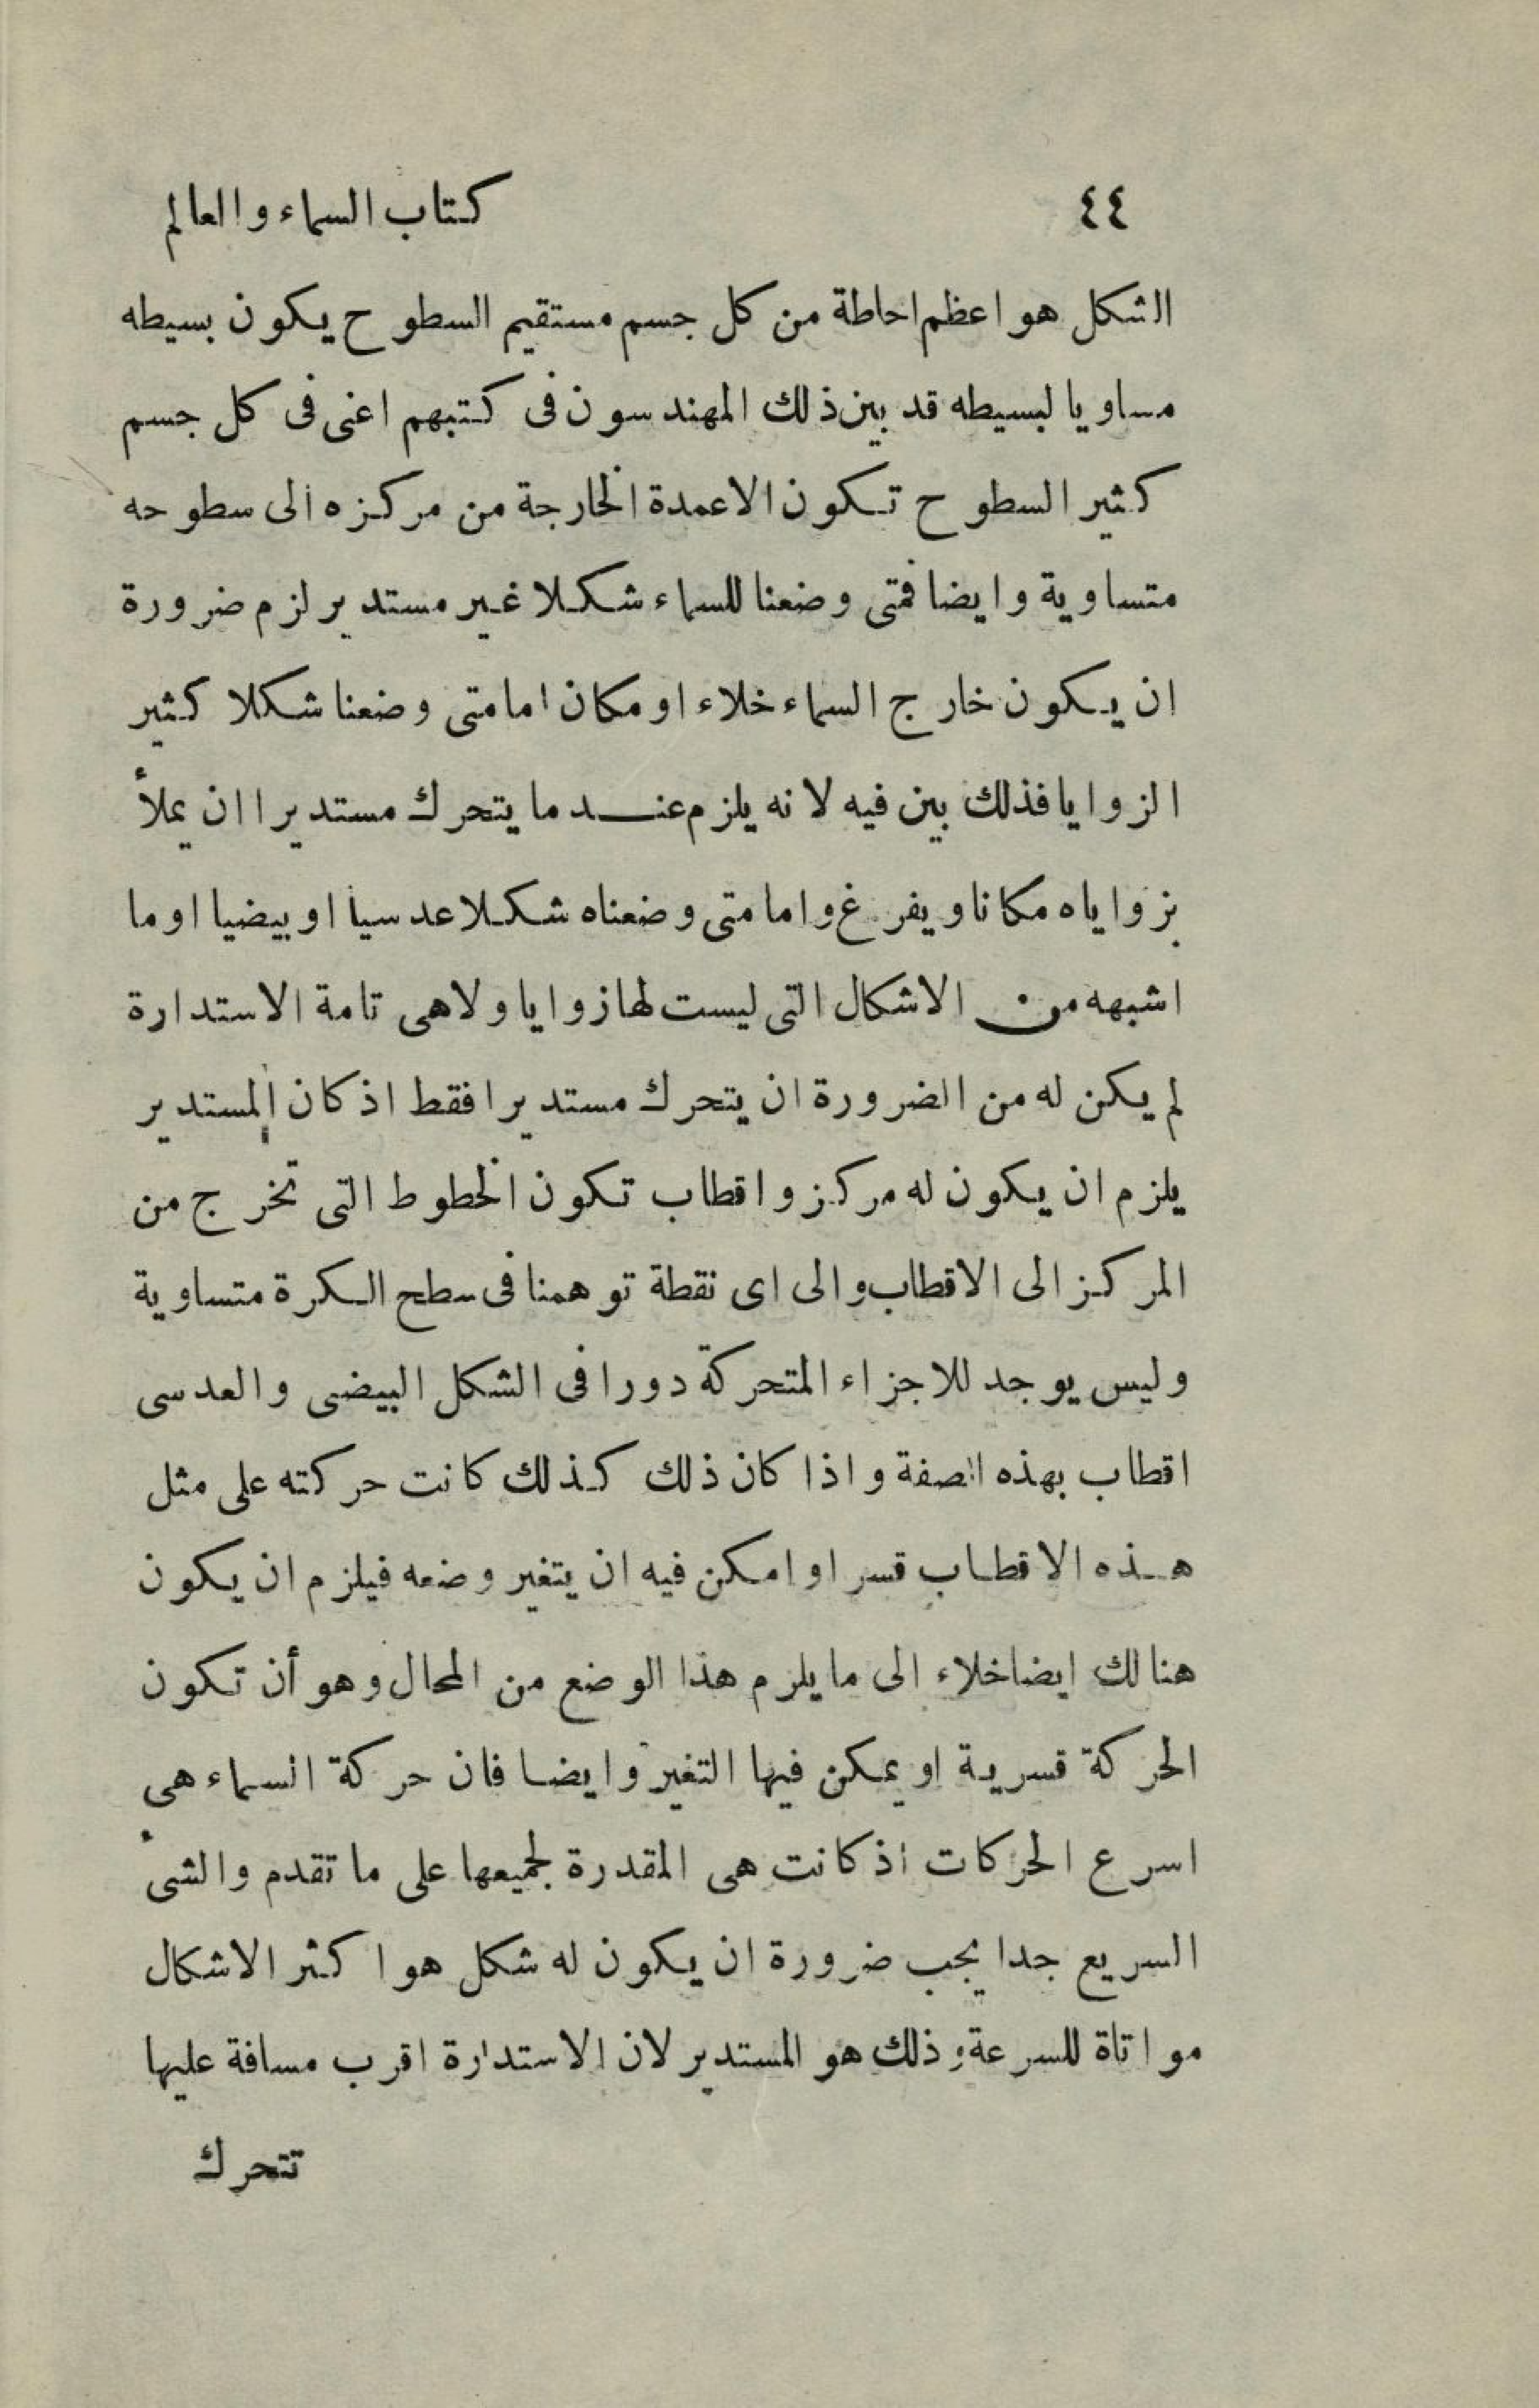 ٤٤ كتاب السماء والعالم
الشكل هو اعظم احاطة من كل جسم مستقيم السطوح يكون بسيطه
مساويا لبسيطه قد بين ذلك المهندسون فى كتبهم اعنى فى كل جسم
كثير السطوح تكون الاعمدة الخارجة من مركزه الى سطوحه
متساوية وايضا فمتى وضعنا للسماء شكلا غير مستدير لزم ضرورة
ان يكون خارج السماء خلاء او مكان اما متى وضعنا شكلا كثير
الزوايا فذلك بين فيه لانه يلزم عند ما يتحرك مستديرا ان يملأ
بزواياه مكانا ويفرغ واما متى وضعناه شكلا عدسيا او بيضيا اوما
اشبهه من الاشكال التى ليست لها زوايا ولاهى تامة الاستدارة
لم يكن له من الضرورة ان يتحرك مستديرا فقط اذ كان المستدير
يلزم ان يكون له مركز واقطاب تكون الخطوط التى تخرج من
المركز الى الاقطاب والى اى نقطة توهمنا فى سطح الكرة متساوية
وليس يوجد للاجزاء المتحركة دورا فى الشكل البيضى والعدسى
اقطاب بهذه الصفة واذا كان ذلك كذلك كانت حركته على مثل
هذه الاقطاب قسرا او امكن فيه ان يتغير وضعه فيلزم ان يكون
هنالك ايضا خلاء الى ما يلزم هذا الوضع من المحال وهو أن تكون
الحركة قسرية او يمكن فيها التغير وايضا فان حركة السماء هى
اسرع الحركات اذ كانت هى المقدرة لجميعها على ما تقدم والشىء
السريع جدا يجب ضرورة ان يكون له شكل هو اكثر الاشكال
مواتاة للسرعة وذلك هو المستدير لان الاستدارة اقرب مسافة عليها
تتحرك